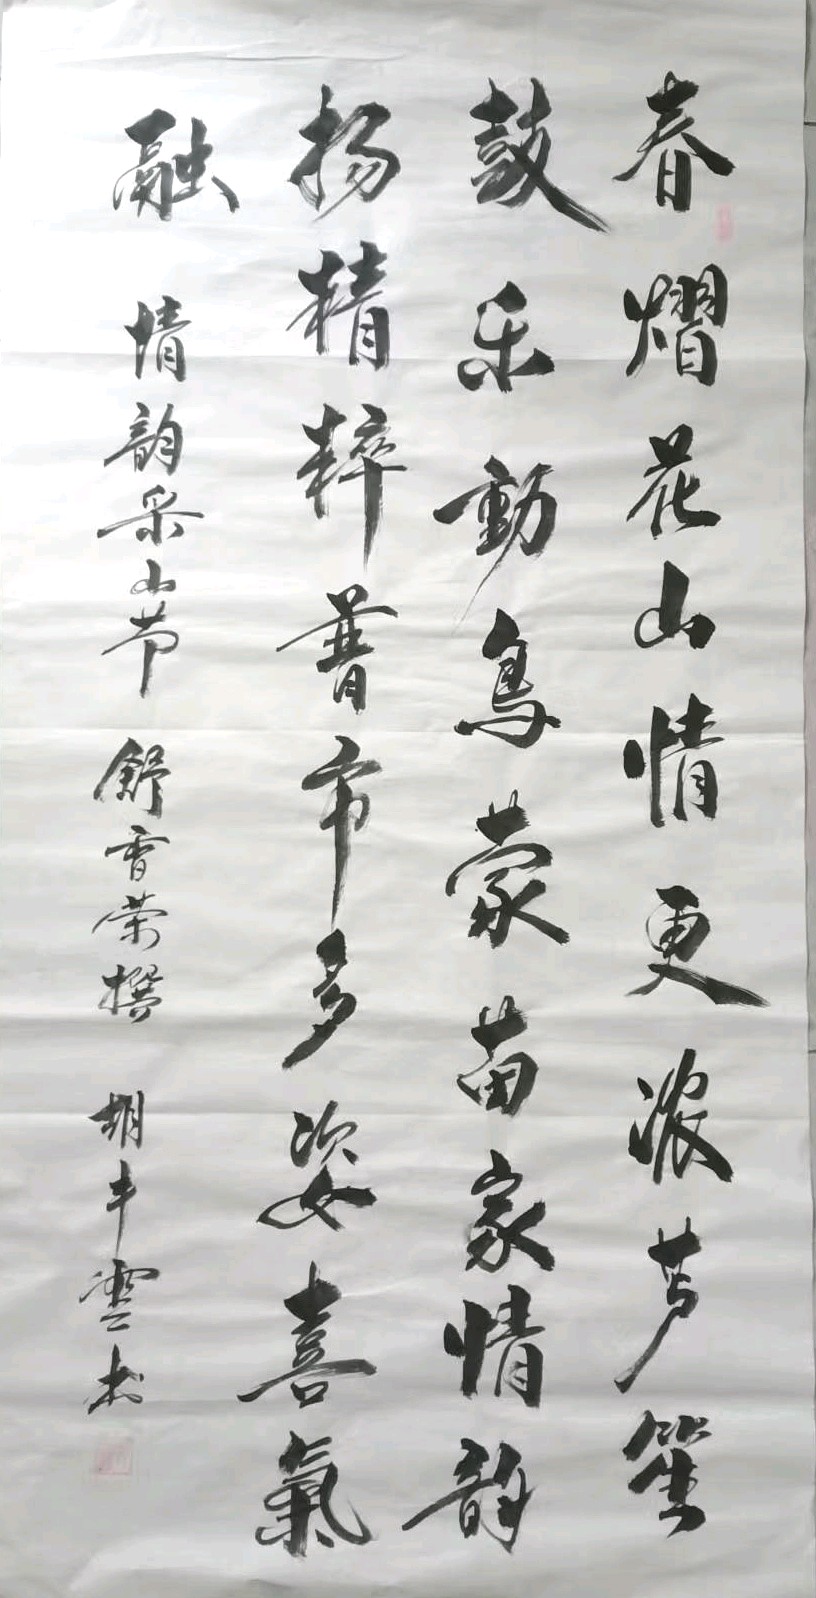 春熠花山情更浓芦笙
鼓乐動鸟蒙苗家情韵
扬精粹普市多姿喜氣
融 情韵采山节 舒香荣撰 胡丰雲书